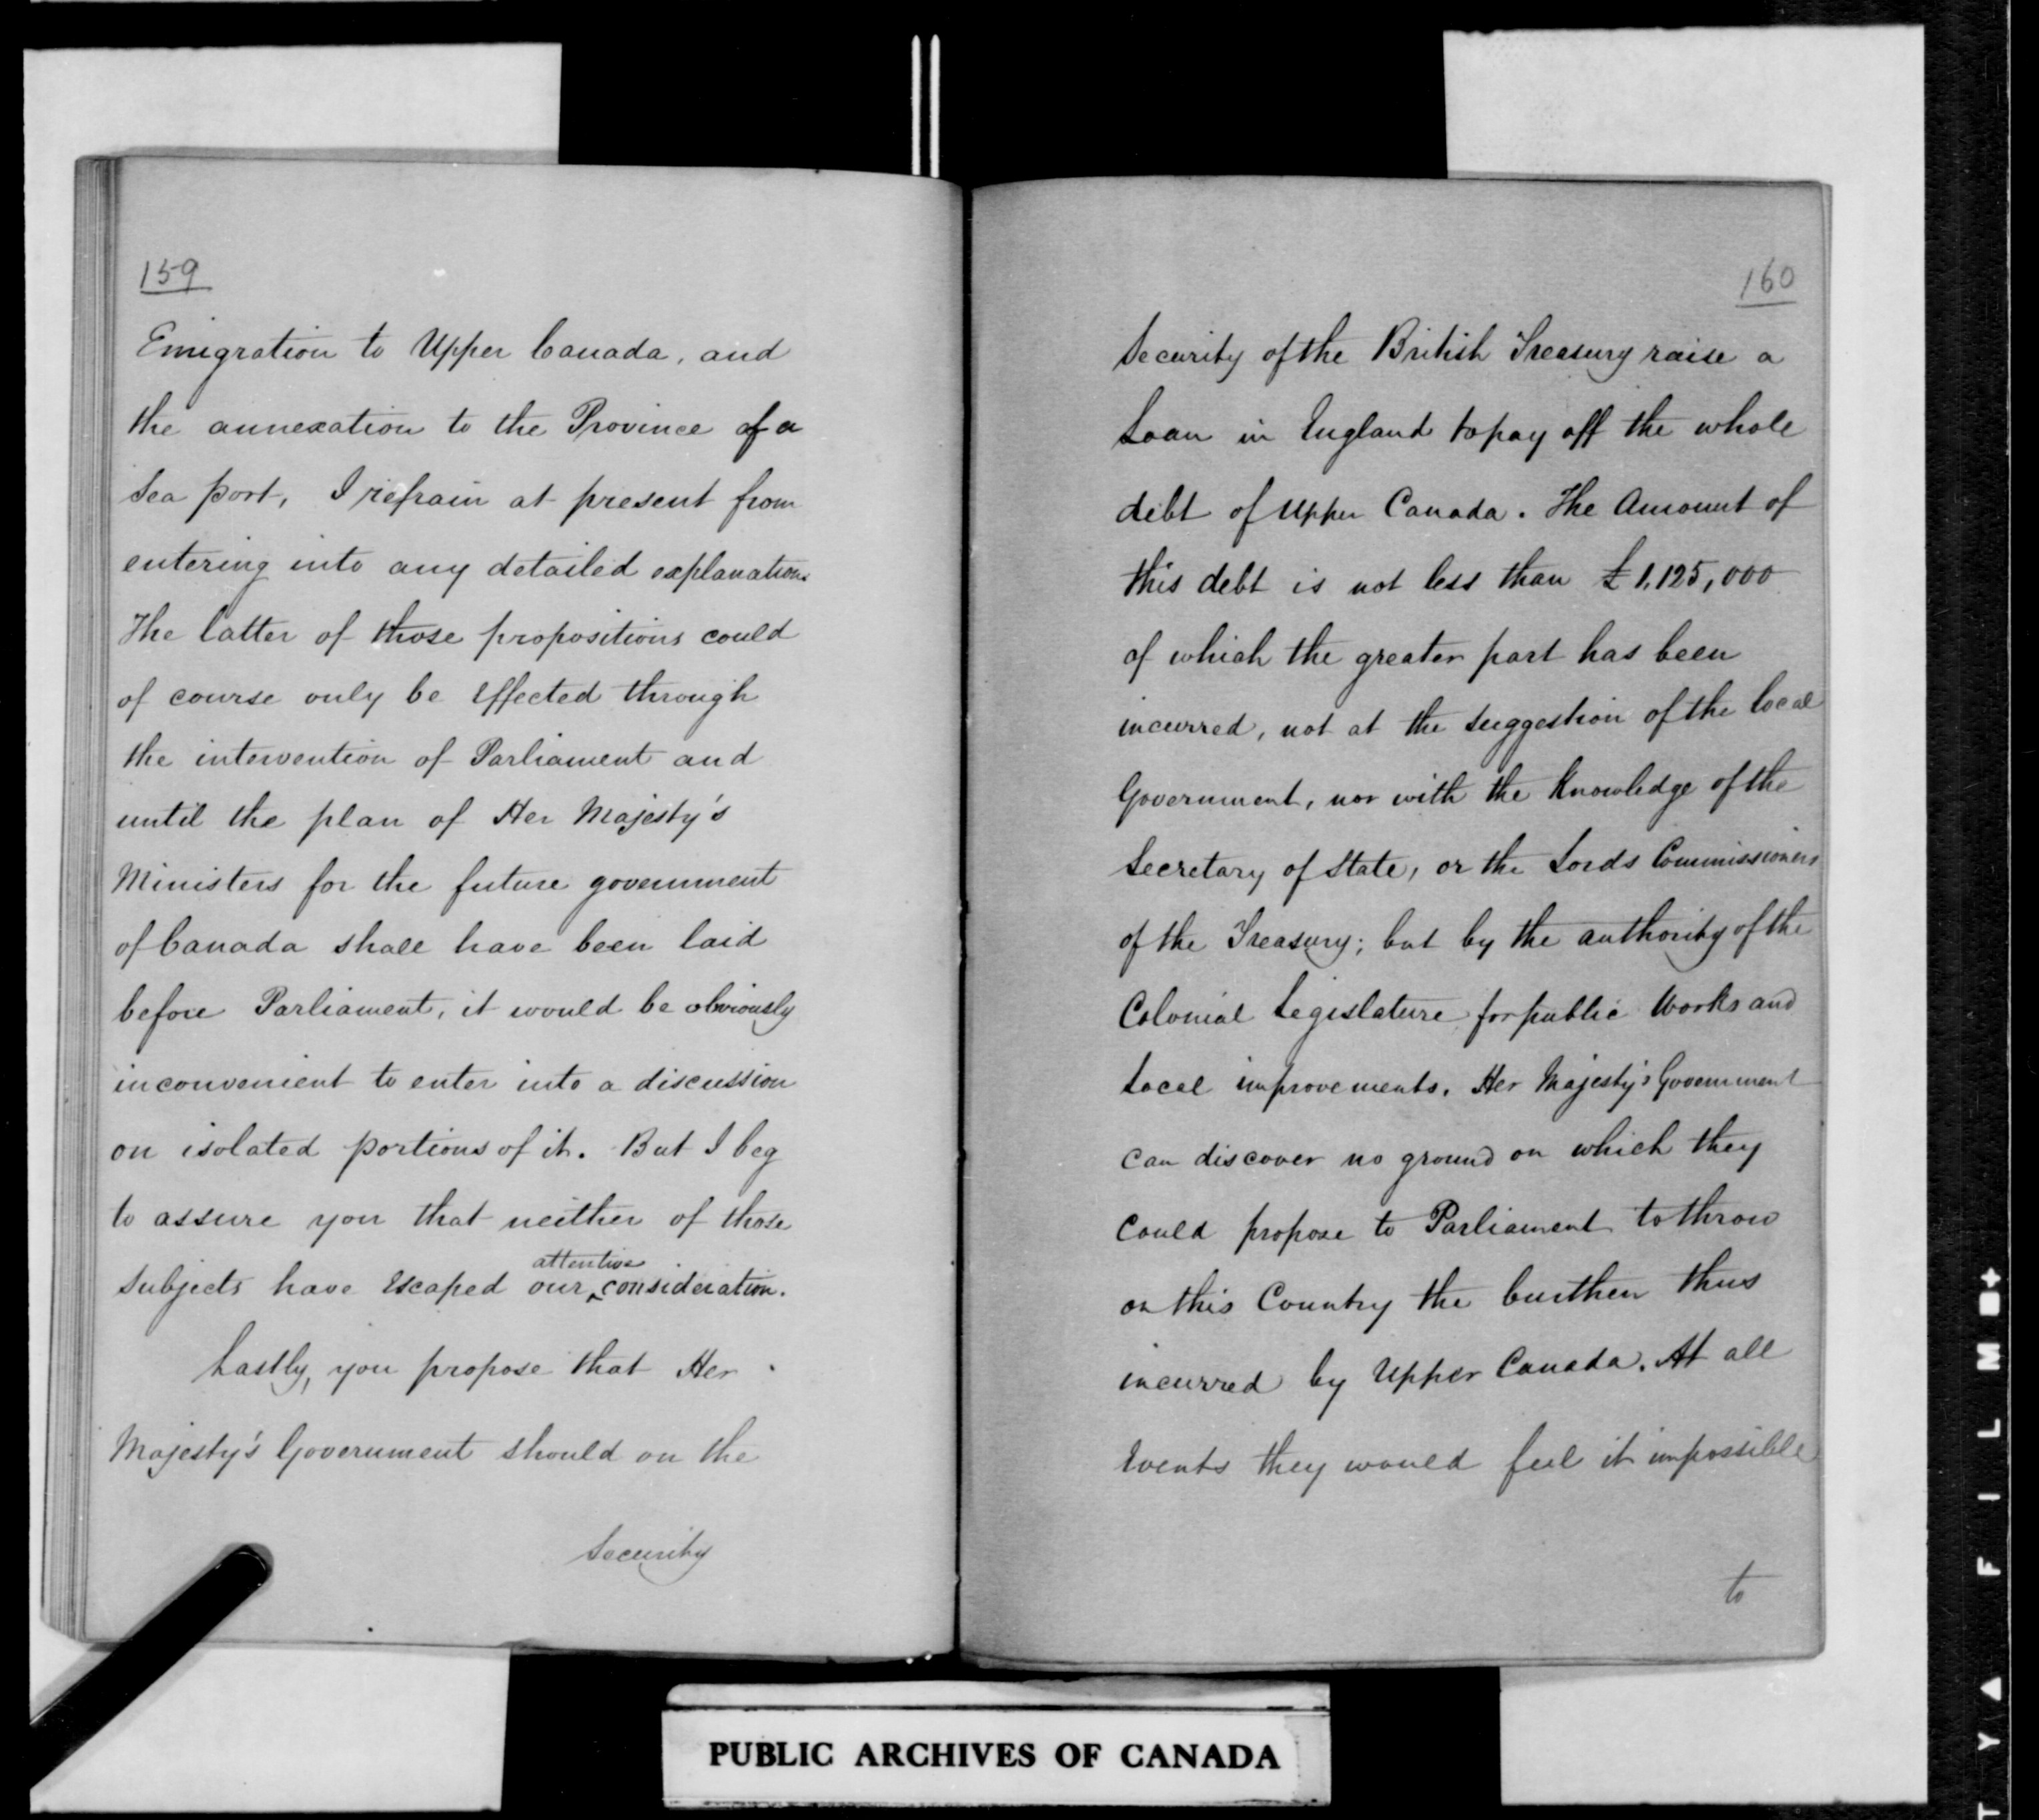 159
Emigration to Upper Canada, and
the annexation to the Province of a
Sea port, I refrain at present from
entering into any detailed explanations
The latter of those propositions could
of course only be effected through
the intervention of Parliament and
until the plan of Her Majesty's
Ministers for the future government
of Canada shall have been laid
before Parliament, it would be obviously
inconvenient to enter into a discussion
on isolated portions of it. But I beg
to assure you that neither of those
attentive
Subjects have escaped our consideration.
Lastly, you propose that Her
Majesty's Government should on the
Security
160
Security of the British Treasury raise a
Loan in England to pay off the whole
debt of Upper Canada. The Amount of
this debt is not less than £1,125,000
of which the greater part has been
incurred, not at the suggestion of the local
Government, nor with the Knowledge of the
Secretary of State, or the Lords Commissioners
of the Treasury; but by the authority of the
Colonial Legislature for public Works and
Local improvements. Her Majesty's Government
can discover no ground on which they
could propose to Parliament to throw
on this Country the burthen thus
incurred by Upper Canada. At all
Events they would feel it impossible
to
PUBLIC ARCHIVES OF CANADA
TY FILM